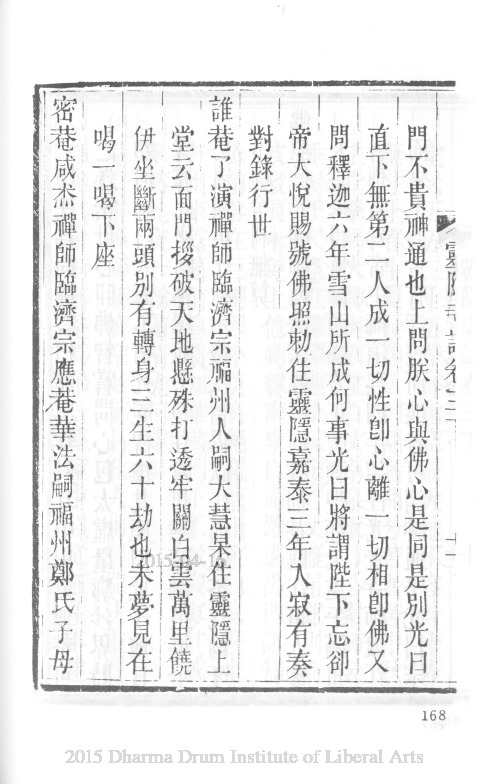 靈隱寺誌卷三下
門不貴神通也上問朕心與佛心是同是別光曰
直下無第二人成一切性卽心離一切相卽佛又
問釋迦六年雪山所成何事光曰將謂陛下忘卻
帝大悅賜號佛照勅住靈隱嘉泰三年入寂有奏
對錄行世
誰菴了演禪師臨濟宗福州人嗣大慧杲住靈隱上
堂云面門拶破天地懸殊打透牢關白雲萬里饒
伊坐斷兩頭別有轉身三生六十劫也未夢見在
喝一喝下座
密菴咸杰禪師臨濟宗應菴華法嗣福州鄭氏子母
168
2015-04-16
2015 Dharma Drum Institute of Liberal Arts